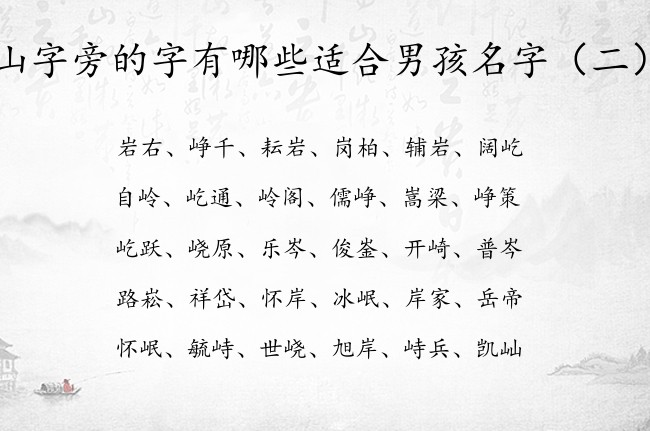 山字旁的字有哪些适合男孩名字（二）
岩右、峥千、耘岩、岗柏、辅岩、阔屹
自岭、屹通、岭阁、儒峥、嵩梁、峥策
屹跃、峣原、乐岑、俊崟、开崎、普岑
路崧、祥岱、怀岸、冰岷、岸家、岳帝
怀岷、毓峙、世峣、旭岸、峙兵、凯屾